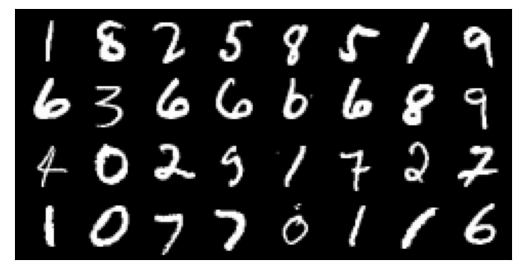 1 8 2 5 8 5 1 9
6 3 6 6 6 6 8 9
4 0 2 9 1 7 2 7
1 0 7 7 0 1 1 6